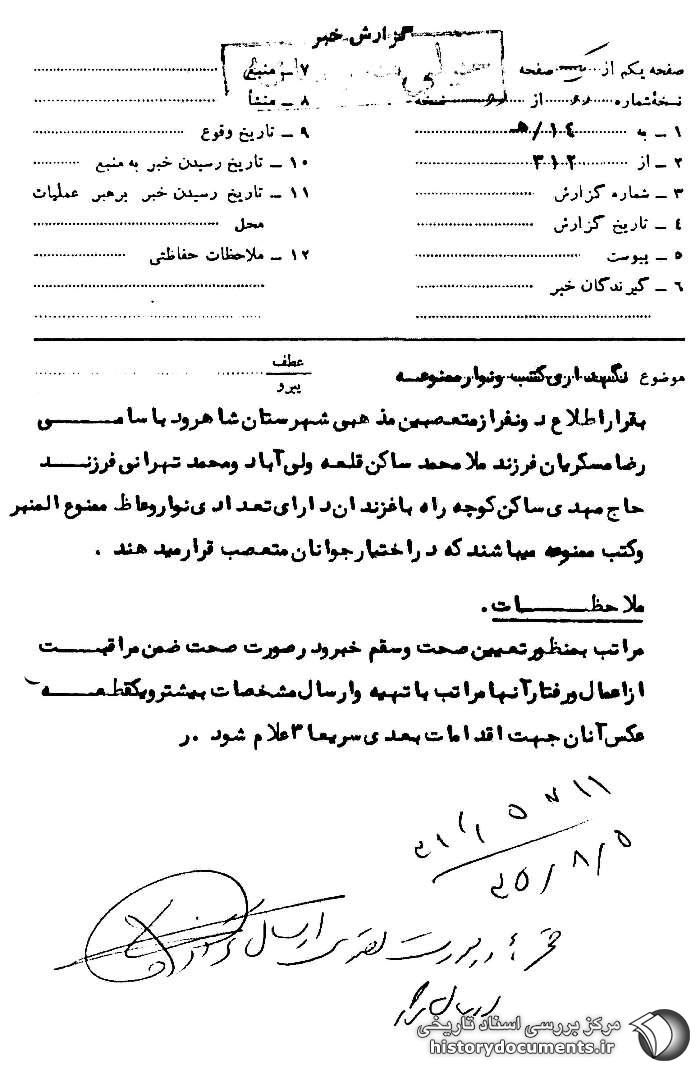 گزارش خبر
صفحه یکم از یک صفحه
نسخهٔ شماره از نسخه
۱ ـ به ۱٤/هـ
۲ ـ از ۳۱۲
۳ ـ شماره گزارش
٤ ـ تاریخ گزارش
٥ ـ پیوست
٦ ـ گیرندگان خبر
۷ ـ منبع
۸ ـ منشأ
۹ ـ تاریخ وقوع
۱۰ ـ تاریخ رسیدن خبر به منبع
۱۱ ـ تاریخ رسیدن خبر برهبر عملیات
محل
۱۲ ـ ملاحظات حفاظتی
موضوع نگهداری کتب و نوار ممنوعه
عطف
پیرو
بقرار اطلاع دو نفر از متعصبین مذهبی شهرستان شاهرود با سامی
رضا عسکریان فرزند ملا محمد ساکن قلعه ولی‌آباد و محمد تهرانی فرزند
حاج مهدی ساکن کوچه راه باغزندان دارای تعدادی نوار وعاظ ممنوع المنبر
و کتب ممنوعه میباشند که در اختیار جوانان متعصب قرار میدهند .
ملاحظات .
مراتب بمنظور تعیین صحت و سقم خبر و در صورت صحت ضمن مراقبت
از اعمال و رفتار آنها مراتب با تهیه و ارسال مشخصات بیشتر و یکقطعه
عکس آنان جهت اقدامات بعدی سریعا اعلام شود .ر
۲۵/۸/۵
ارسال
مرکز بررسی اسناد تاریخی
historydocuments.ir